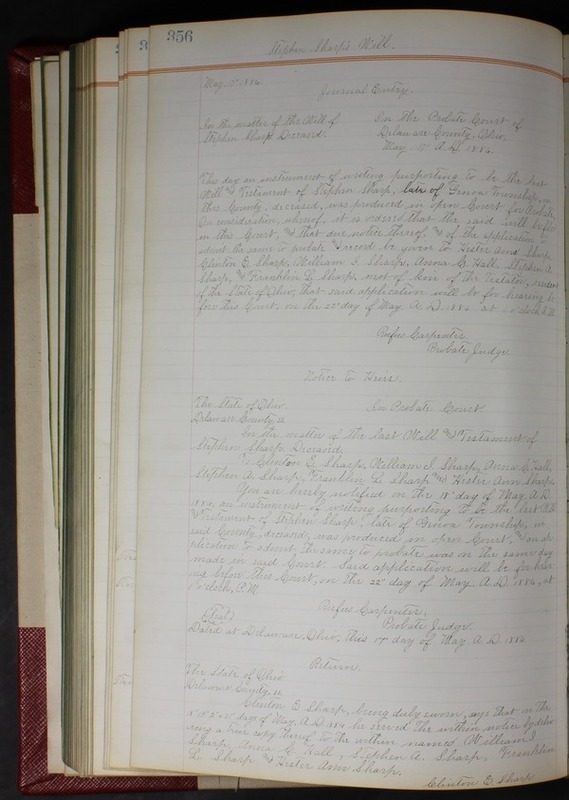 356
Stephen Sharp's Will.
May 1884.
Journal Entry.
In the matter of the Will of
Stephen Sharp Deceased.
In the Probate Court of
Delaware County, Ohio.
May A.D. 1884
This day an instrument of writing purporting to be the last
Will and Testament of Stephen Sharp, late of Genoa Township, in
this County, deceased, was produced in open Court for Probate,
On consideration, whereof, it is ordered that the said will be filed
in this Court, and that due notice thereof, and of the application to
admit the same to probate and record be given to Hester Ann Sharp
Clinton E. Sharp, William I. Sharp, Anna C. Hall, Stephen A.
Sharp, and Franklin L. Sharp, next of kin of the testator, resident
of the State of Ohio, that said application will be for hearing be
fore this Court, on the 22" day of May A.D. 1884 at o'clock
Rufus Carpenter
Probate Judge
Notice to Heirs.
The State of Ohio
Delaware County, ss
In Probate Court
In the matter of the last Will and Testament of
Stephen Sharp Deceased,
Clinton E. Sharp, William I Sharp, Anna C. Hall,
Stephen A. Sharp, Franklin L. Sharp and Hester Ann Sharp,
You are hereby notified on the day of May A.D.
1884, an instrument of writing purporting to be the last Will
and Testament of Stephen Sharp, late of Genoa Township, in
said County, deceased, was produced in open Court, and an ap
plication to admit the same to probate was on the same day
made in said Court. Said application will be for hear
ing before this Court, on the 22" day of May A.D. 1884, at
o'clock, P.M.
Rufus Carpenter,
(Seal) Probate Judge
Dated at Delaware, Ohio, this day of May A.D. 1884
Return.
The State of Ohio
Delaware County ss
Clinton E. Sharp, being duly sworn, says that on the
days of May, A.D. 1884 he served the within notice by deliv
ering a true copy thereof to the within named William I
Sharp, Anna C. Hall, Stephen A. Sharp, Franklin
L. Sharp and Hester Ann Sharp.
Clinton E. Sharp